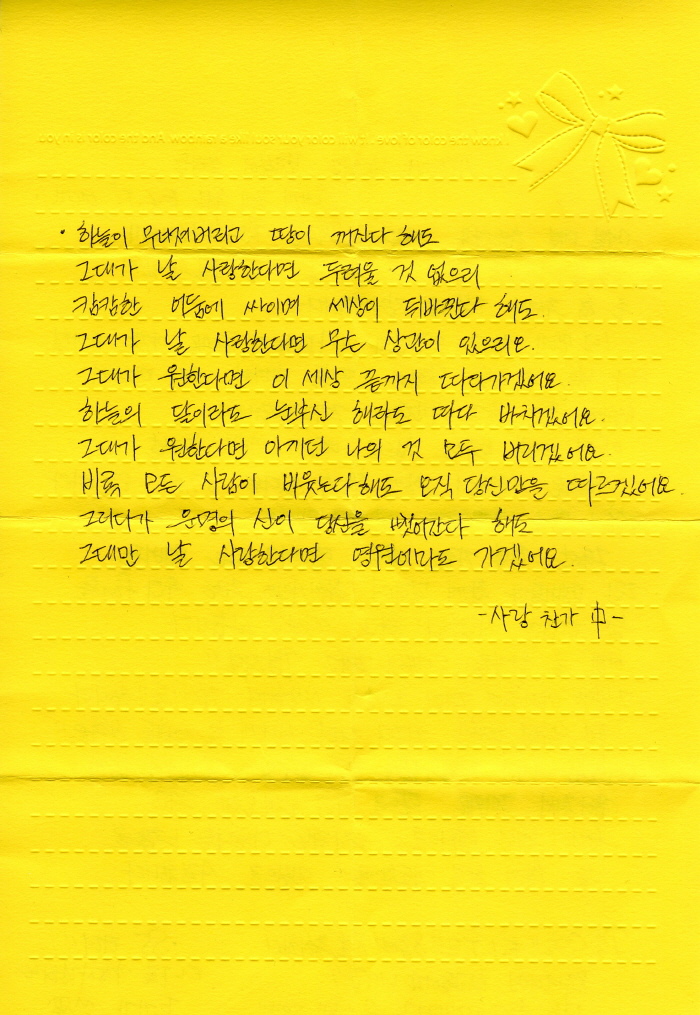 · 하늘이 무너져버리고 땅이 꺼진다 해도
그대가 날 사랑한다면 두려울 것 없으리
캄캄한 어둠에 싸이며 세상이 뒤바뀐다 해도.
그대가 날 사랑한다면 무슨 상관이 있으리요.
그대가 원한다면 이 세상 끝까지 따라가겠어요.
하늘의 달이라도 눈부신 해라도 따다 바치겠어요.
그대가 원한다면 아끼던 나의 것 모두 버리겠어요.
비록 모든 사람이 비웃는다해도 오직 당신만을 따르겠어요.
그러다가 운명의 신이 당신을 뺏어간다 해도
그대만 날 사랑한다면 영원에라도 가겠어요.
-사랑 찬가 中-